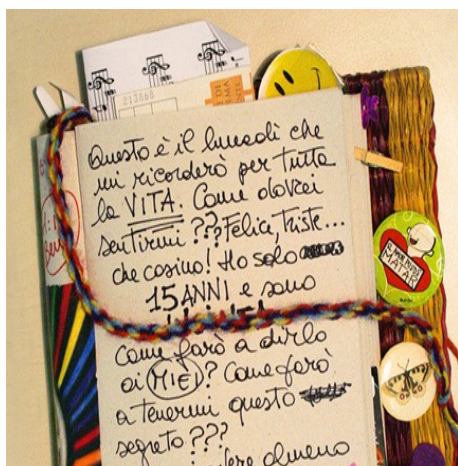 213860
Questo è il lunedì che
mi ricorderò per tutta
la VITA. Come dovrei
sentirmi ??? Felice, triste...
che casino! Ho solo
15 ANNI e sono
come farò a dirlo
ai MIEI? Come farò
a tenermi questo
segreto ???
almeno
MATAR